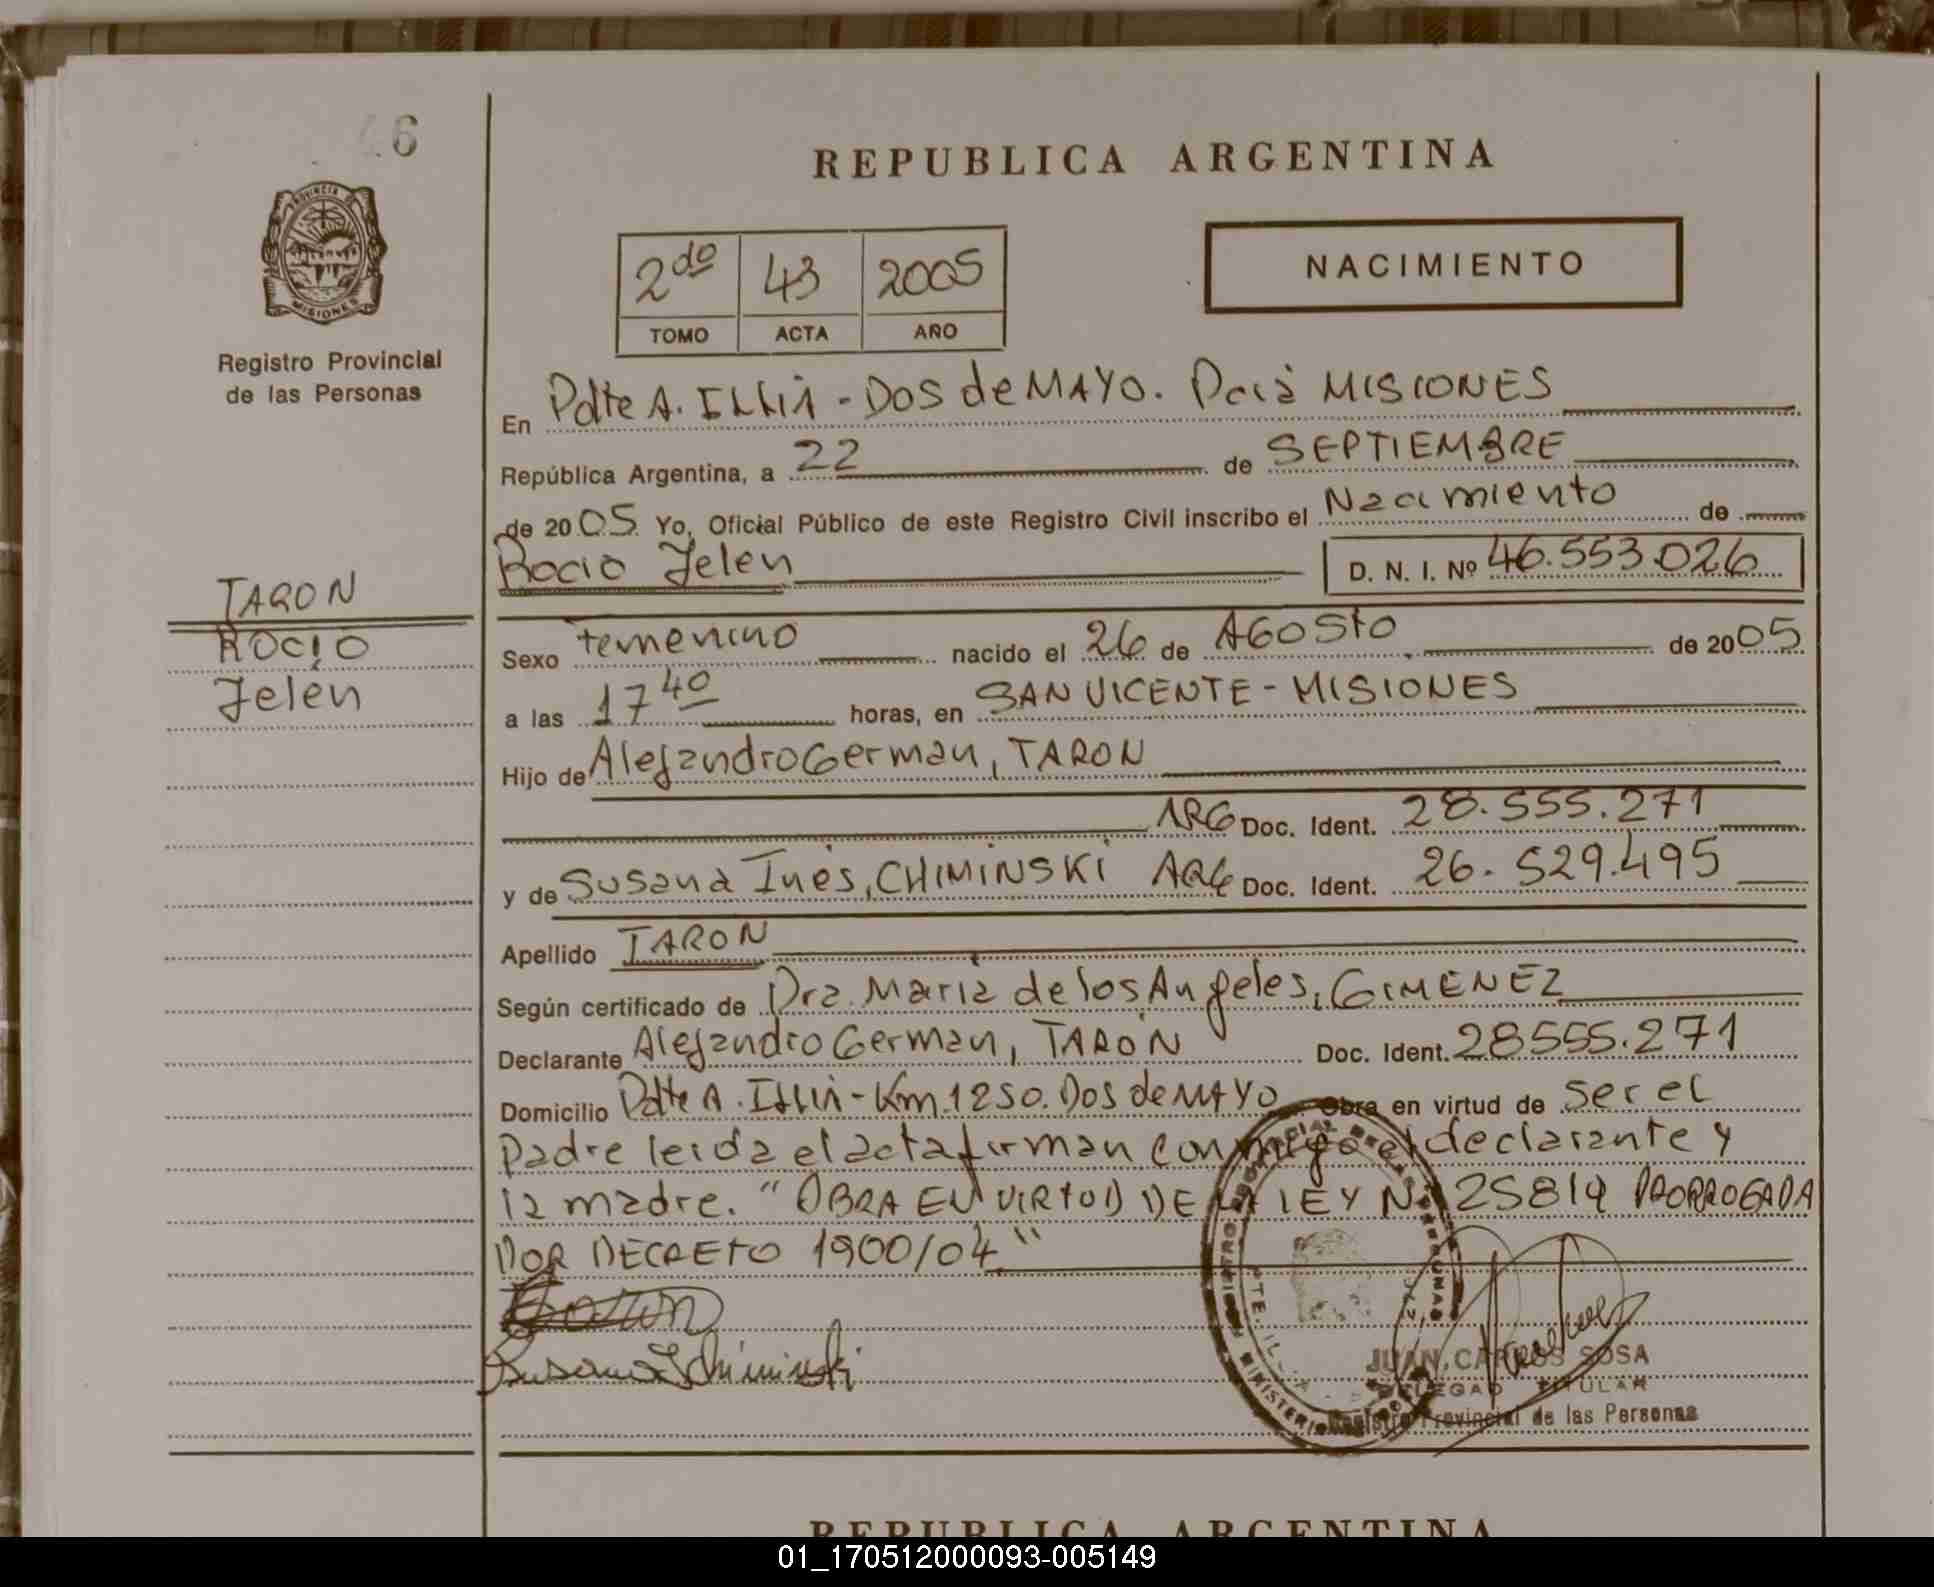 6
REPUBLICA ARGENTINA
PROVINCIA DE
MISIONES
Registro Provincial
de las Personas
2do 43 2005
TOMO ACTA AÑO
NACIMIENTO
En Pdte A. ILLIA - DOS de MAYO. Pcia MISIONES
República Argentina, a 22 de SEPTIEMBRE
de 2005 Yo, Oficial Público de este Registro Civil inscribo el Nacimiento de
Rocio Jelen D. N. I. Nº 46.553.026
TARON
ROCIO
Jelen
Sexo Femenino nacido el 26 de AGOSTO de 2005
a las 17 40 horas, en SAN VICENTE - MISIONES
Hijo de Alejandro German, TARON
ARG Doc. Ident. 28.555.271
y de Susana Inés, CHIMINSKI ARG Doc. Ident. 26.529.495
Apellido TARON
Según certificado de Dra. Maria de los Angeles, GIMENEZ
Declarante Alejandro German, TARON Doc. Ident. 28555.271
Domicilio Pdte A. ILLIA - Km. 1250. Dos de MAYO Obra en virtud de ser el
Padre leida el acta firman conmigo el declarante y
la madre. "OBRA EN VIRTUD DE LA LEY Nº 25819 PRORROGADA
POR DECRETO 1900/04"
Susana I Chiminski
JUAN CARLOS SOSA
DELEGADO TITULAR
Registro Provincial de las Personas
REPUBLICA ARGENTINA
01_170512000093-005149